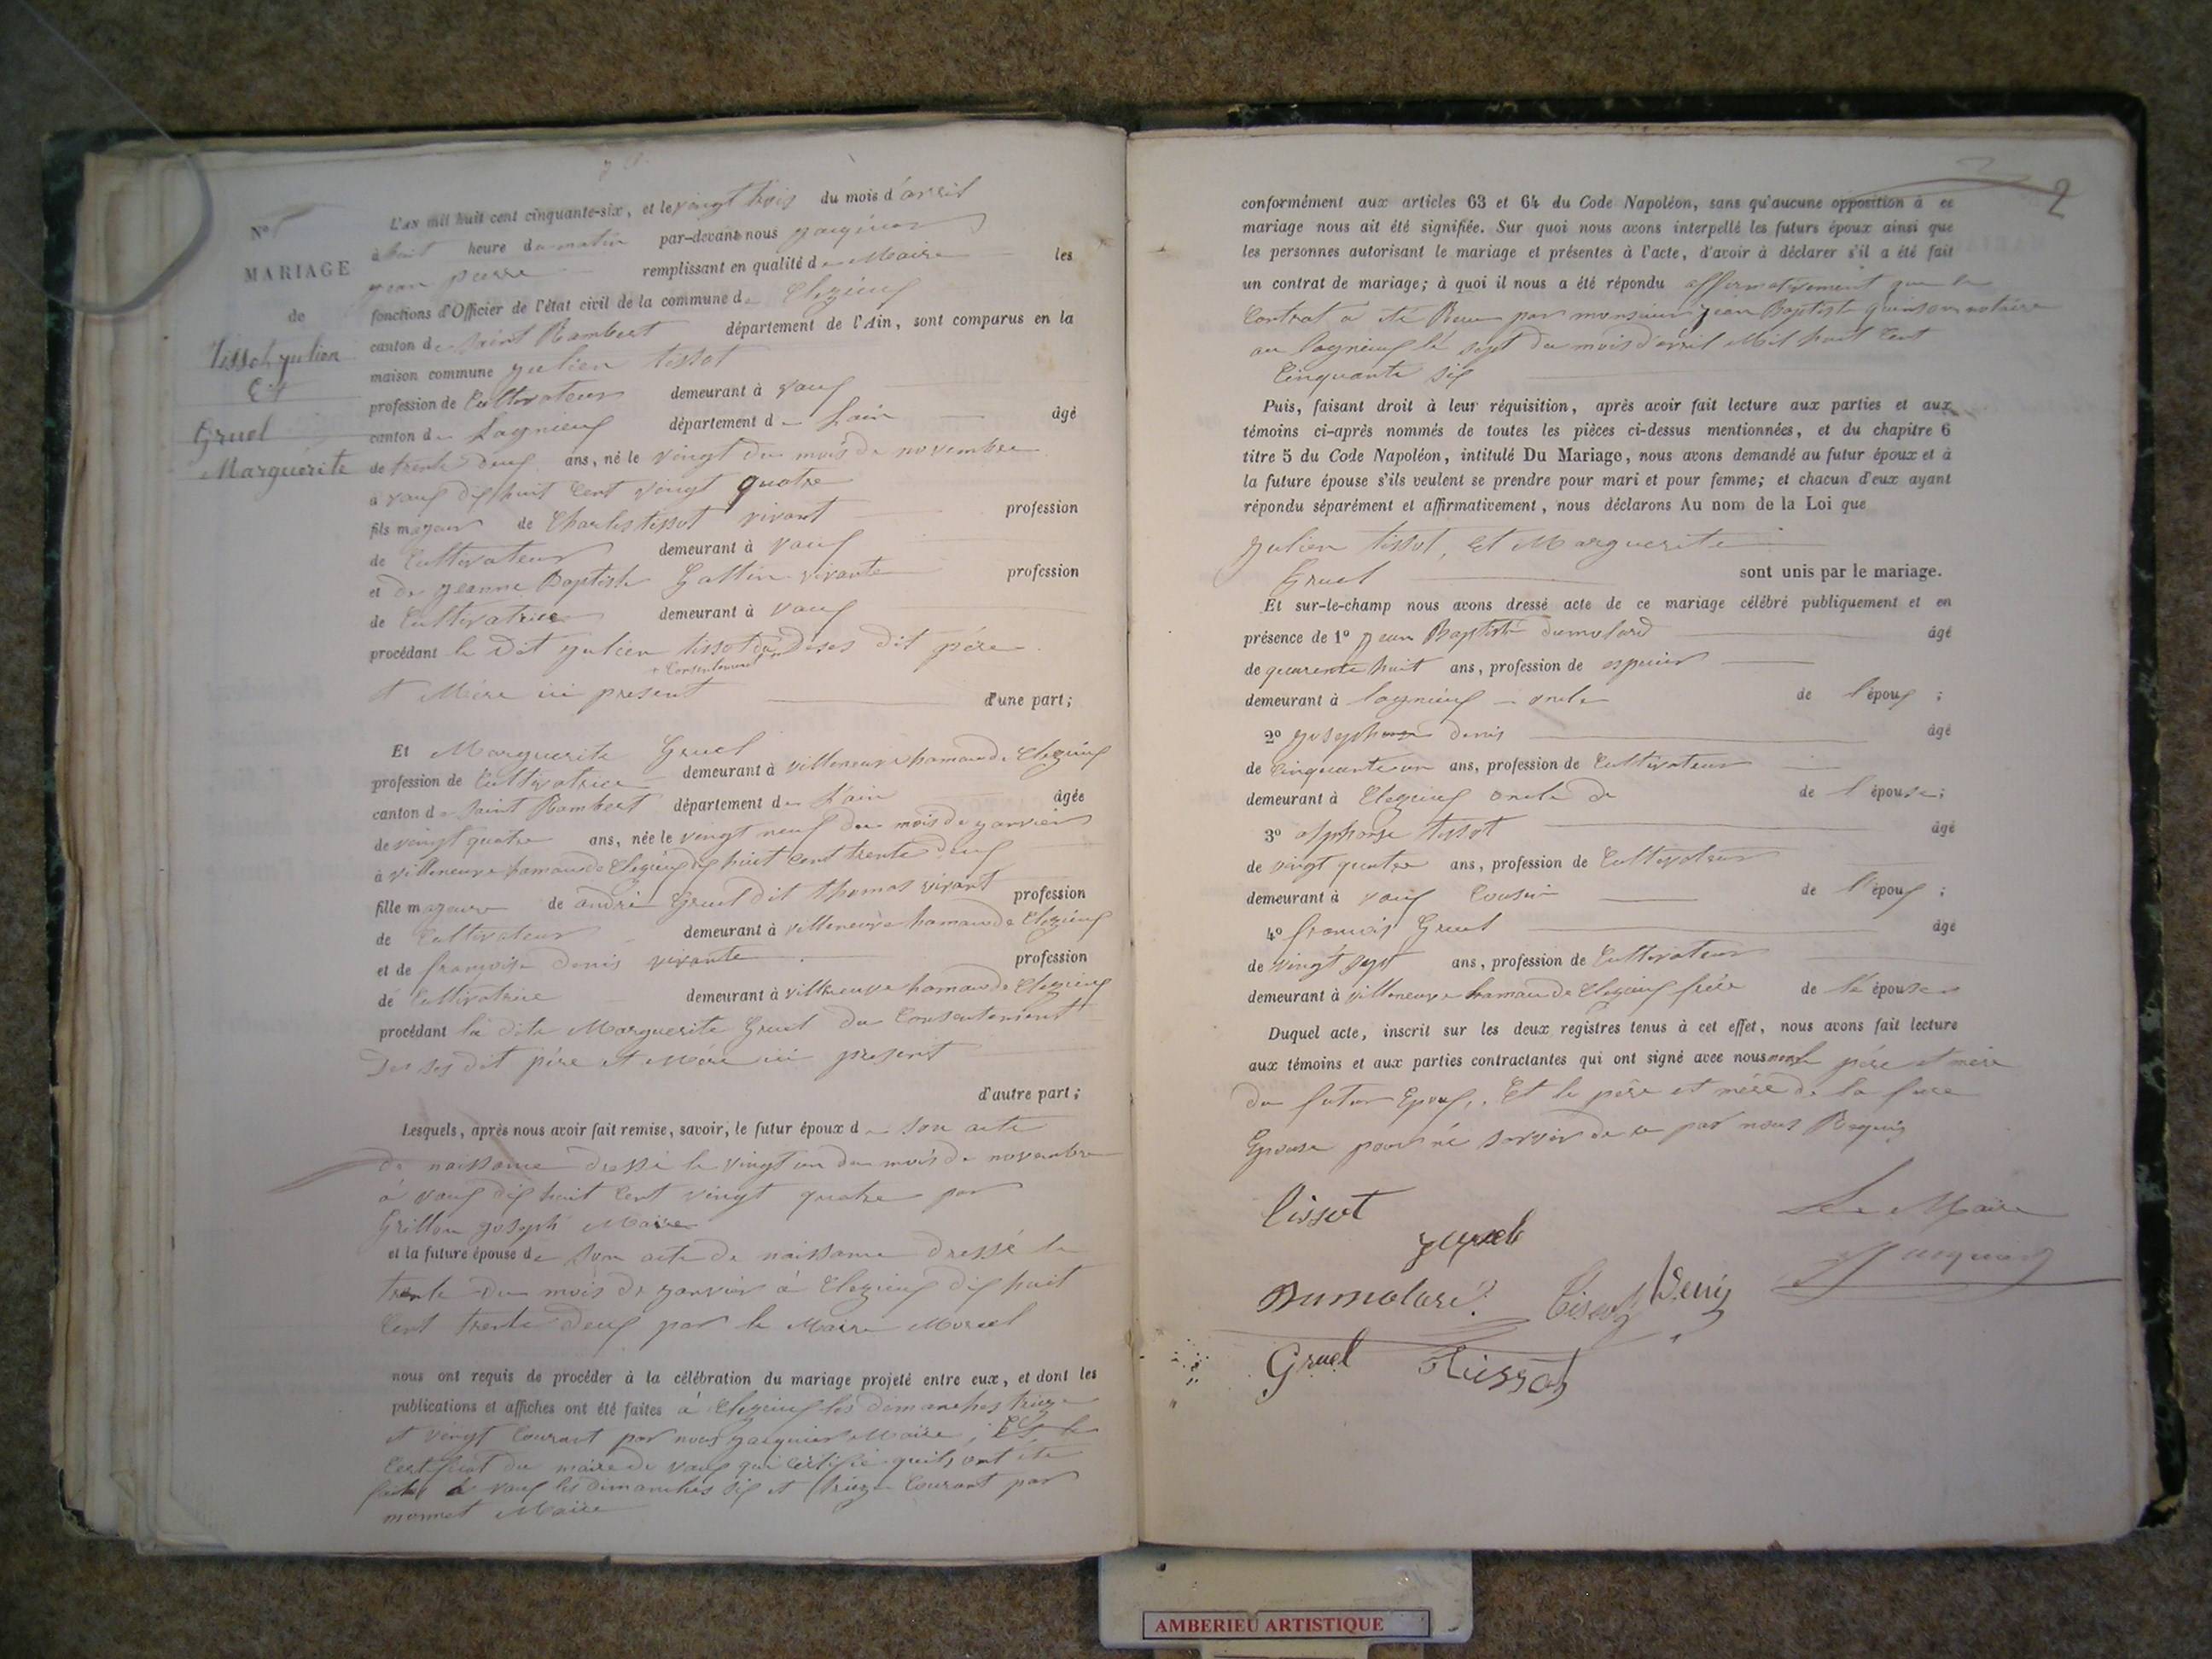 N°
MARIAGE
de
Tissot julien
Et
Gruel
Marguerite
L'an mil huit cent cinquante-six, et le vingt trois du mois d'avril
à huit heure du matin par-devant nous jacquier
jean pierre remplissant en qualité de Maire les
fonctions d'Officier de l'état civil de la commune de Cleyzieux
canton de saint Rambert département de l'Ain, sont comparus en la
maison commune julien tissot
profession de Cultivateur demeurant à vaux
canton de Lagnieux département de L'ain âgé
de trente deux ans, né le vingt du mois de novembre
à vaux dix huit Cent vingt quatre
fils majeur de Charles tissot vivant profession
de Cultivateur demeurant à vaux
et de jeanne Baptiste Gottin vivante profession
de Cultivatrice demeurant à vaux
procédant le Dit julien tissot du Deses dit père
+ Consentement
et Mère ici present d'une part;
Et Marguerite Gruel
profession de Cultivatrice demeurant à villeneuve hamau de Cleyzieux
canton de saint Rambert département de L'ain âgée
de vingt quatre ans, née le vingt neuf du mois de janvier
à villeneuve hamau de Cleyzieux dix huit Cent trente deux
fille majeure de andré Gruel dit thomas vivant profession
de Cultivateur demeurant à villeneuve hamau de Cleyzieux
et de françoise denis vivante profession
de Cultivatrice demeurant à villeneuve hamau de Cleyzieux
procédant la dite Marguerite Gruel du Consentement
Des ses dit père et Mère ici present
d'autre part;
Lesquels, après nous avoir fait remise, savoir, le futur époux de son acte
de naissance dressé le vingt un du mois de novembre
à vaux dix huit Cent vingt quatre par
Grillon joseph Maire
et la future épouse de son acte de naissance dressé le
trente du mois de janvier à Cleyzieux dix huit
Cent trente deux par le Maire Morel
nous ont requis de procéder à la célébration du mariage projeté entre eux, et dont les
publications et affiches ont été faites à Cleyzieux les dimanches treize
et vingt Courant par nous jacquier Maire, Et le
Certificat du maire de vaux qui certifie quils ont été
faites à vaux les dimanches six et treize Courant par
monnet Maire
2
conformément aux articles 63 et 64 du Code Napoléon, sans qu'aucune opposition à ce
mariage nous ait été signifiée. Sur quoi nous avons interpellé les futurs époux ainsi que
les personnes autorisant le mariage et présentes à l'acte, d'avoir à déclarer s'il a été fait
un contrat de mariage; à quoi il nous a été répondu affirmativement que le
Contrat a été Reçu par monsieur jean Baptiste notaire
au lagnieux le sept du mois d'avril Mil huit Cent
Cinquante six
Puis, faisant droit à leur réquisition, après avoir fait lecture aux parties et aux
témoins ci-après nommés de toutes les pièces ci-dessus mentionnées, et du chapitre 6
titre 5 du Code Napoléon, intitulé Du Mariage, nous avons demandé au futur époux et à
la future épouse s'ils veulent se prendre pour mari et pour femme; et chacun d'eux ayant
répondu séparément et affirmativement, nous déclarons Au nom de la Loi que
julien tissot, et Marguerite
Gruel sont unis par le mariage.
Et sur-le-champ nous avons dressé acte de ce mariage célébré publiquement et en
présence de 1° jean Baptiste dumolard âgé
de quarente huit ans, profession de espicier
demeurant à lagnieux oncle de l'époux;
2° joseph denis âgé
de Cinquante un ans, profession de Cultivateur
demeurant à Cleyzieux oncle de de l'épouse;
3° alphonse tissot âgé
de vingt quatre ans, profession de Cultivateur
demeurant à vaux Cousin de l'époux;
4° francois Gruel âgé
de vingt sept ans, profession de Cultivateur
demeurant à villeneuve hamau de Cleyzieux frère de l'épouse
Duquel acte, inscrit sur les deux registres tenus à cet effet, nous avons fait lecture
aux témoins et aux parties contractantes qui ont signé avec nous non le père et mère
du futur Epoux, Et le père et mère de la future
Epouse pour né savoir de ce par nous Requis
tissot
Le Maire
Dumolard
Denis
Jacquier
Gruel Tissot
AMBERIEU ARTISTIQUE